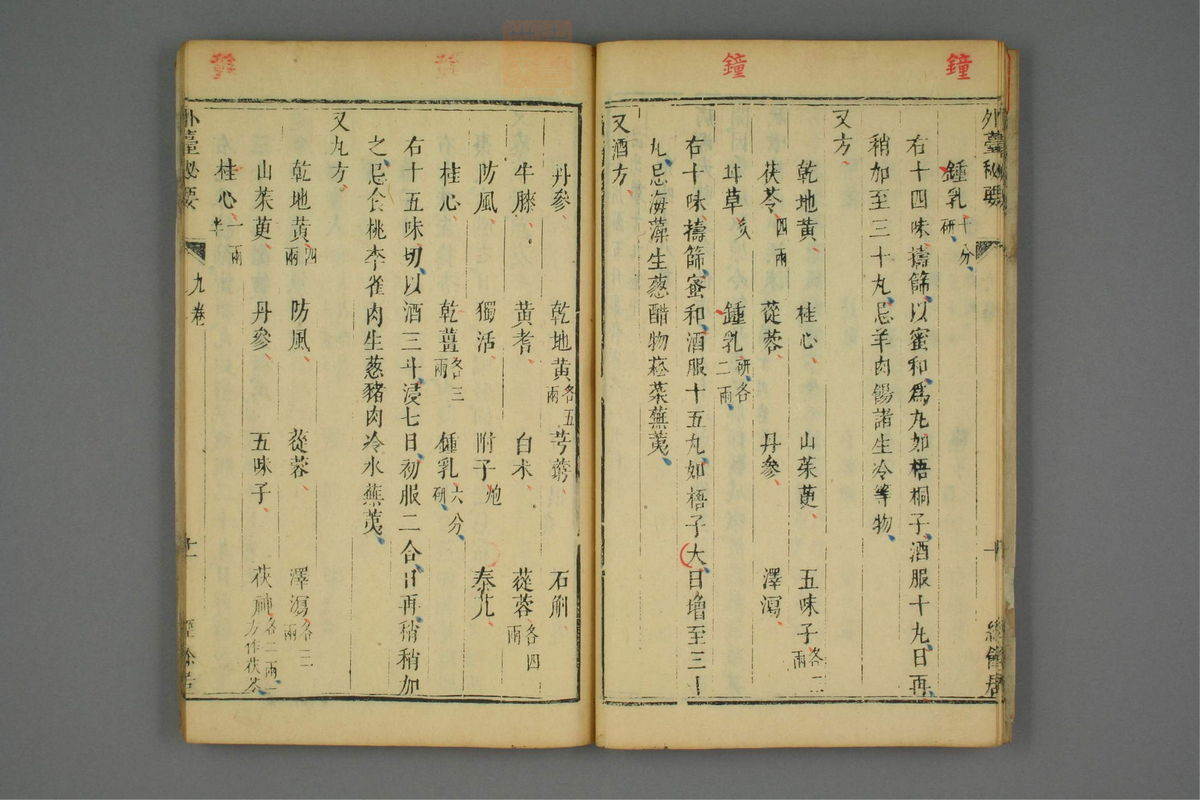 鐘
鐘
外臺秘要
鍾乳十分研
右十四味擣篩以蜜和爲丸如梧桐子酒服十丸日再
稍加至三十丸忌羊肉餳諸生冷等物
又方
乾地黃 桂心 山茱萸 五味子各三兩
茯苓四兩 蓯蓉 丹參 澤瀉
甘草炙 鍾乳研各二兩
右十味擣篩蜜和酒服十五丸如梧子大日增至三十
丸忌海藻生葱醋物菘菜蕪荑
又酒方
丹參 乾地黃各五兩 芎藭 石斛
牛膝 黃耆 白朮 蓯蓉各四兩
防風 獨活 附子炮 秦艽
桂心 乾薑各三兩 鍾乳六分研
右十五味切以酒三斗浸七日初服二合日再稍稍加
之忌食桃李雀肉生葱豬肉冷水蕪荑
又丸方
乾地黃四兩 防風 蓯蓉 澤瀉各三兩
山茱萸 丹參 五味子 茯神各二兩一方作茯苓
桂心一兩半
外臺秘要
九卷
十一
經餘居